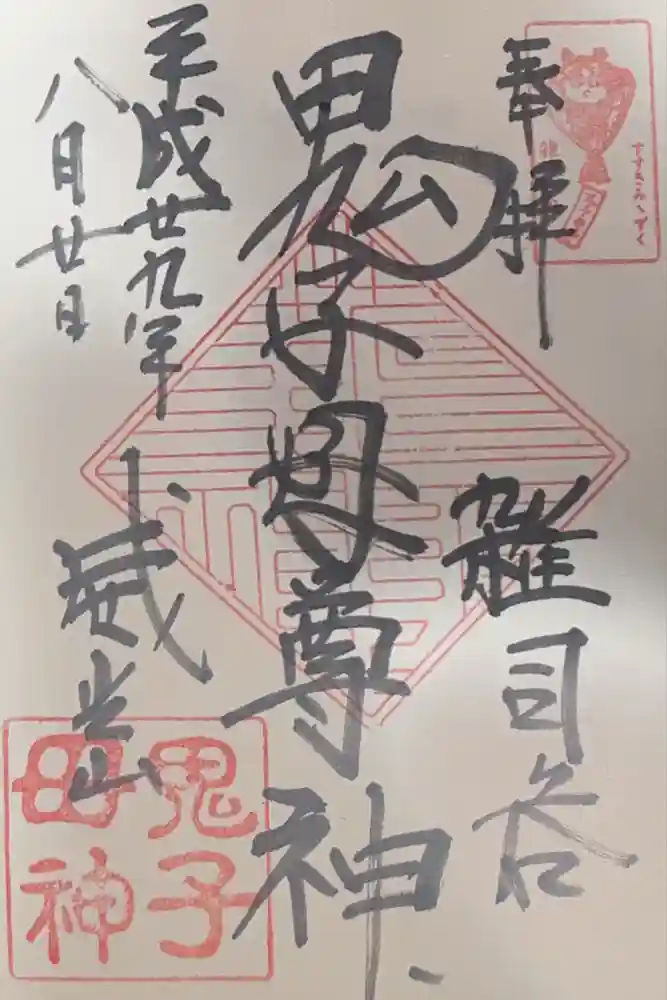 奉拝
雑司谷
鬼子母尊神
平成廿九年
八月廿日
威光山
すすきみみずく
鬼子
母神